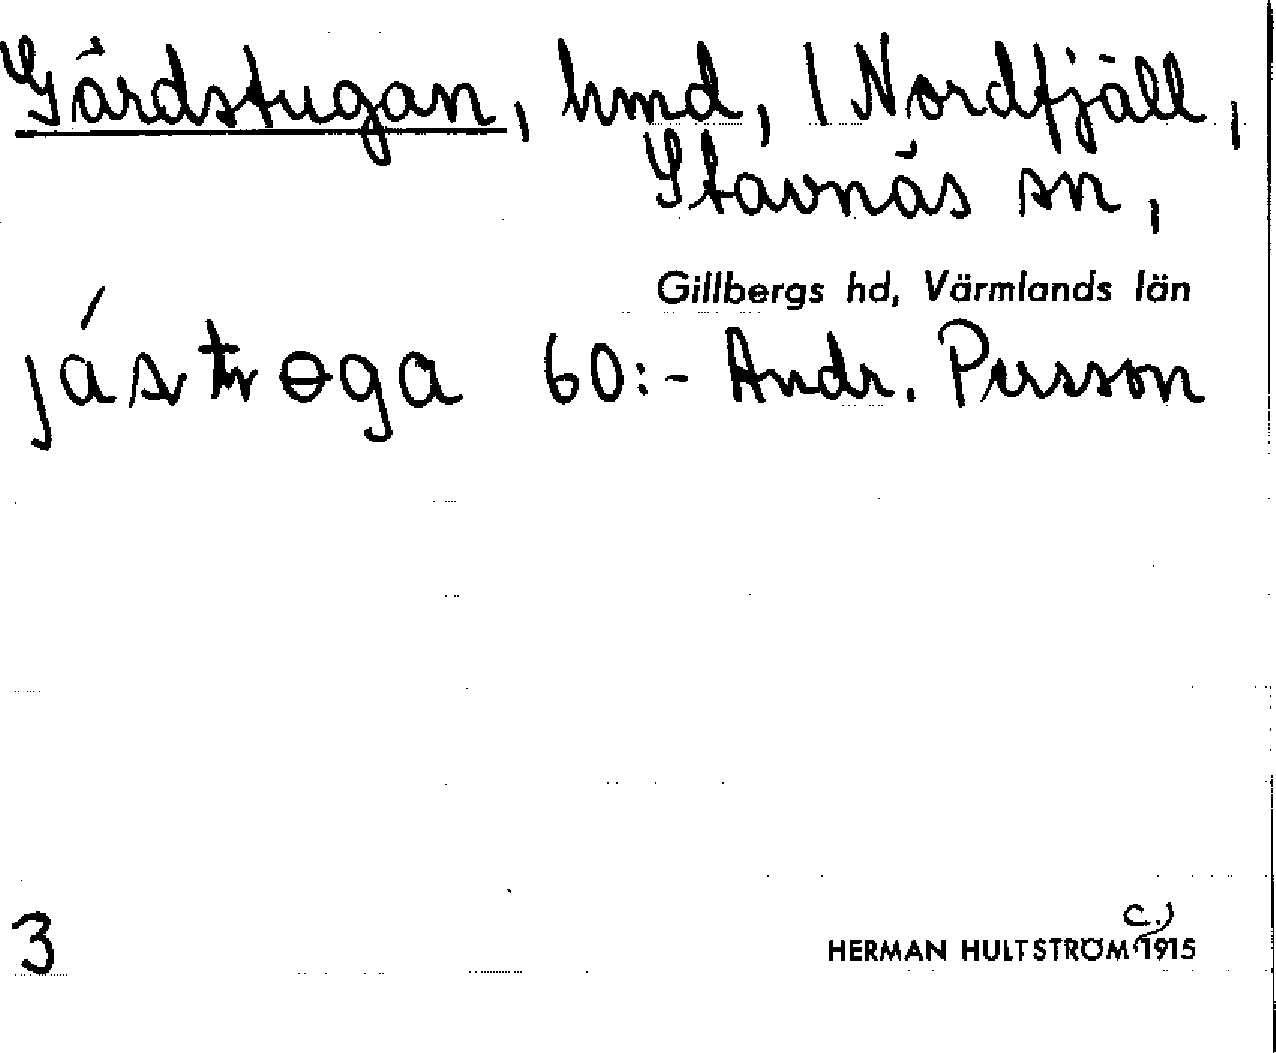 Gärdstugan, hmd, / Nordfjäll,
Stavnäs sn,
Gillbergs hd, Värmlands län
jástrɵga 60:- Andr. Persson
3
HERMAN HULTSTRÖM (c.) 1915